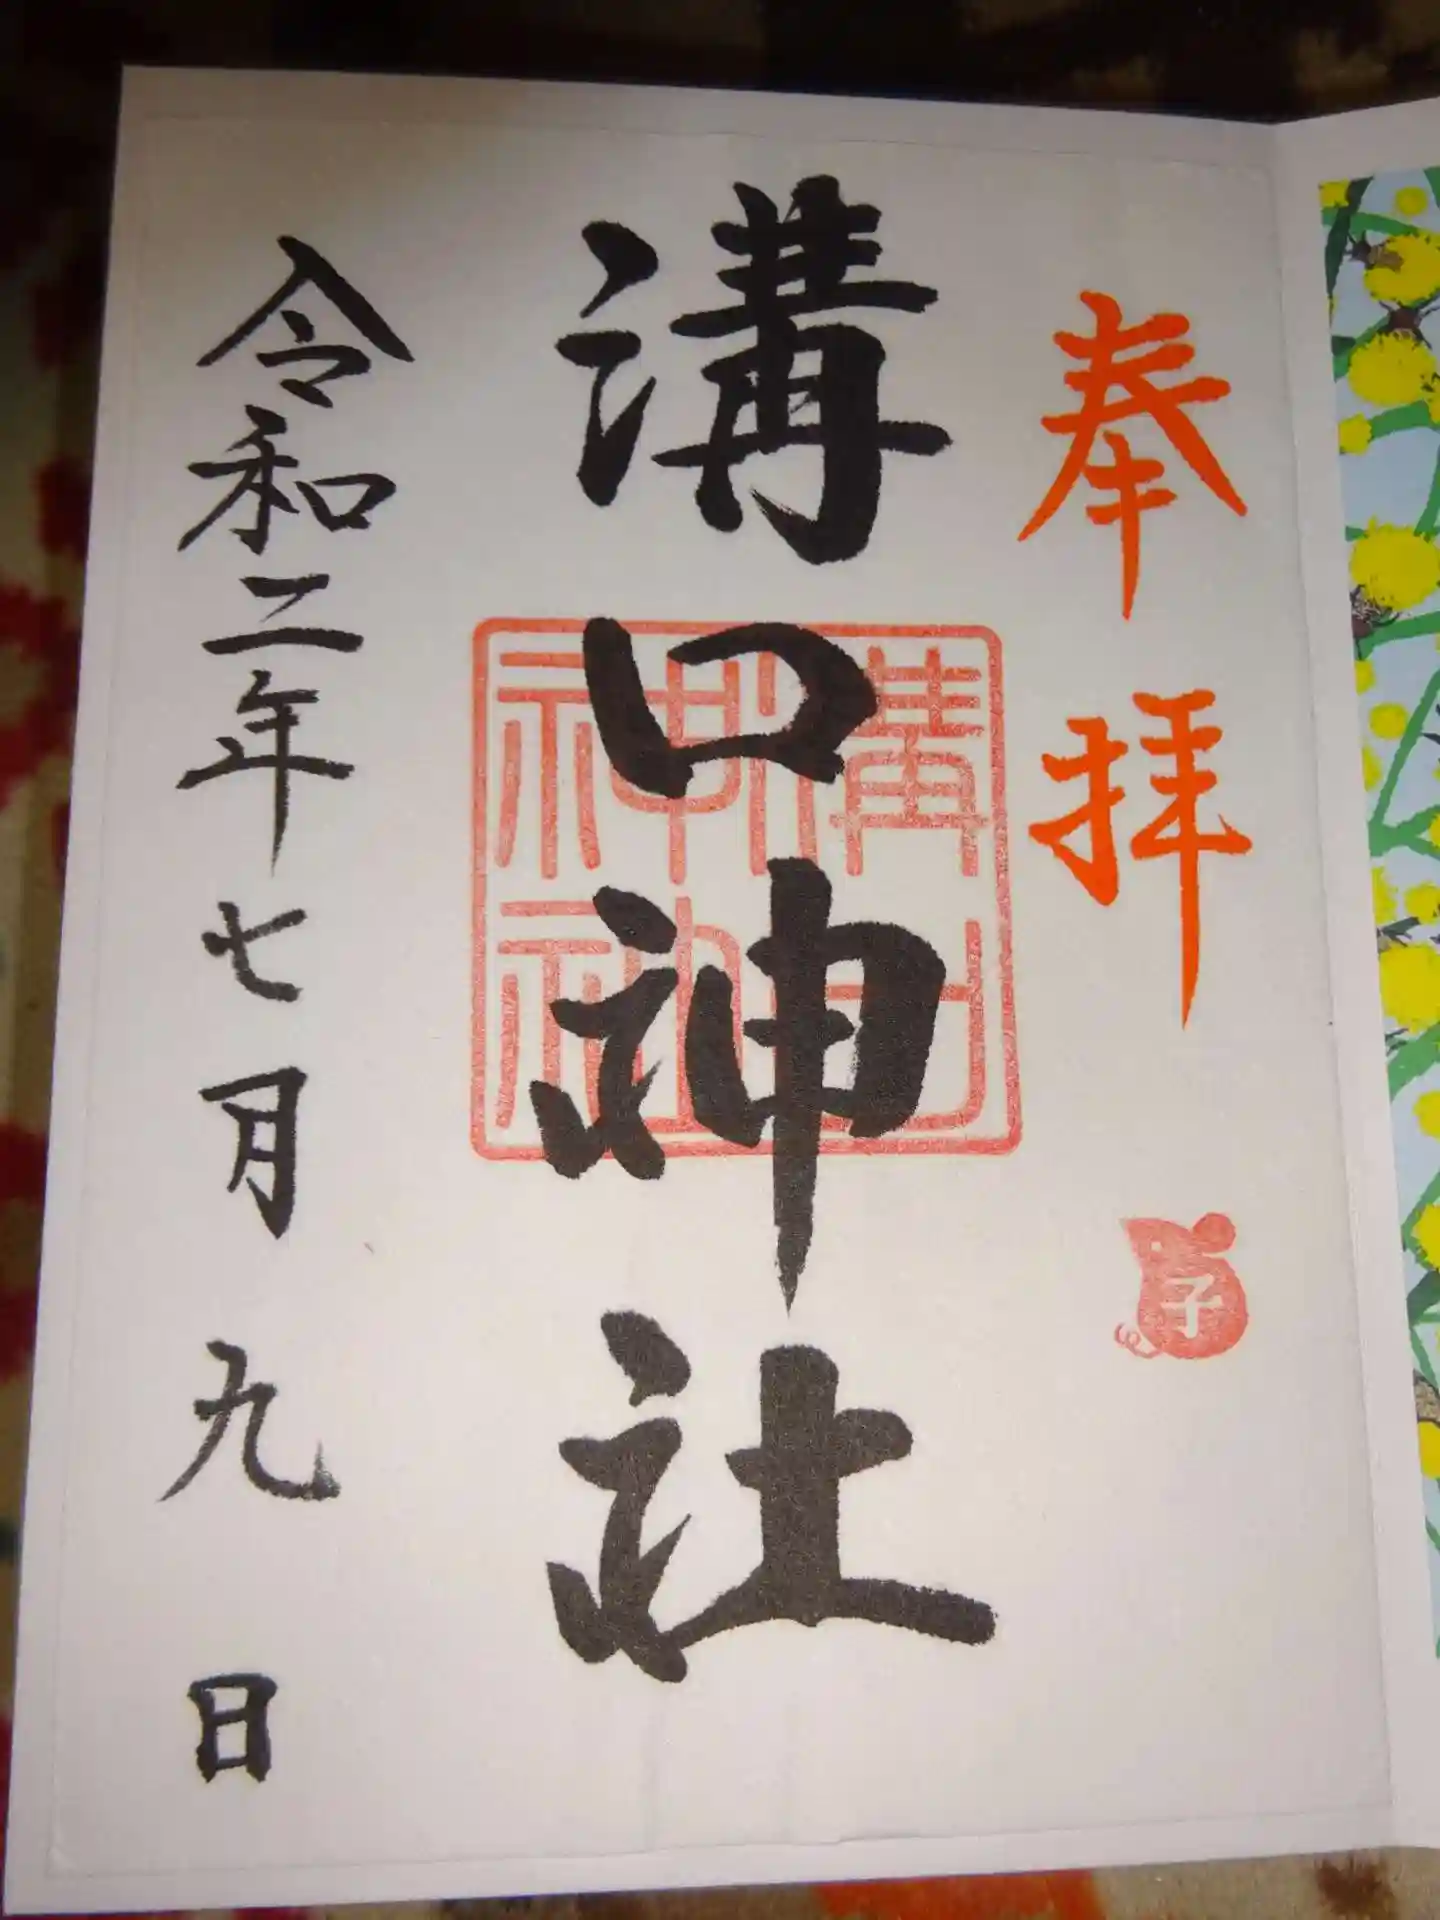 奉拝
子
溝口神社
溝口神社
令和二年七月九日